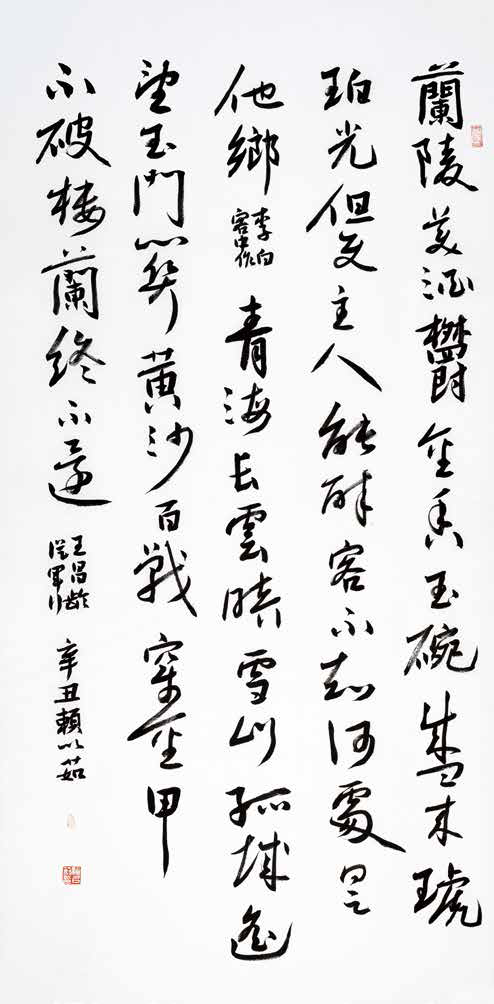 蘭陵美酒鬱金香玉碗盛来琥
珀光但使主人能醉客不知何處是
他鄉
李白
客中作
青海長雲暗雪山孤城遥
望玉門關黃沙百戰穿金甲
不破楼蘭終不還
王昌齡
從軍行
辛丑賴以茹